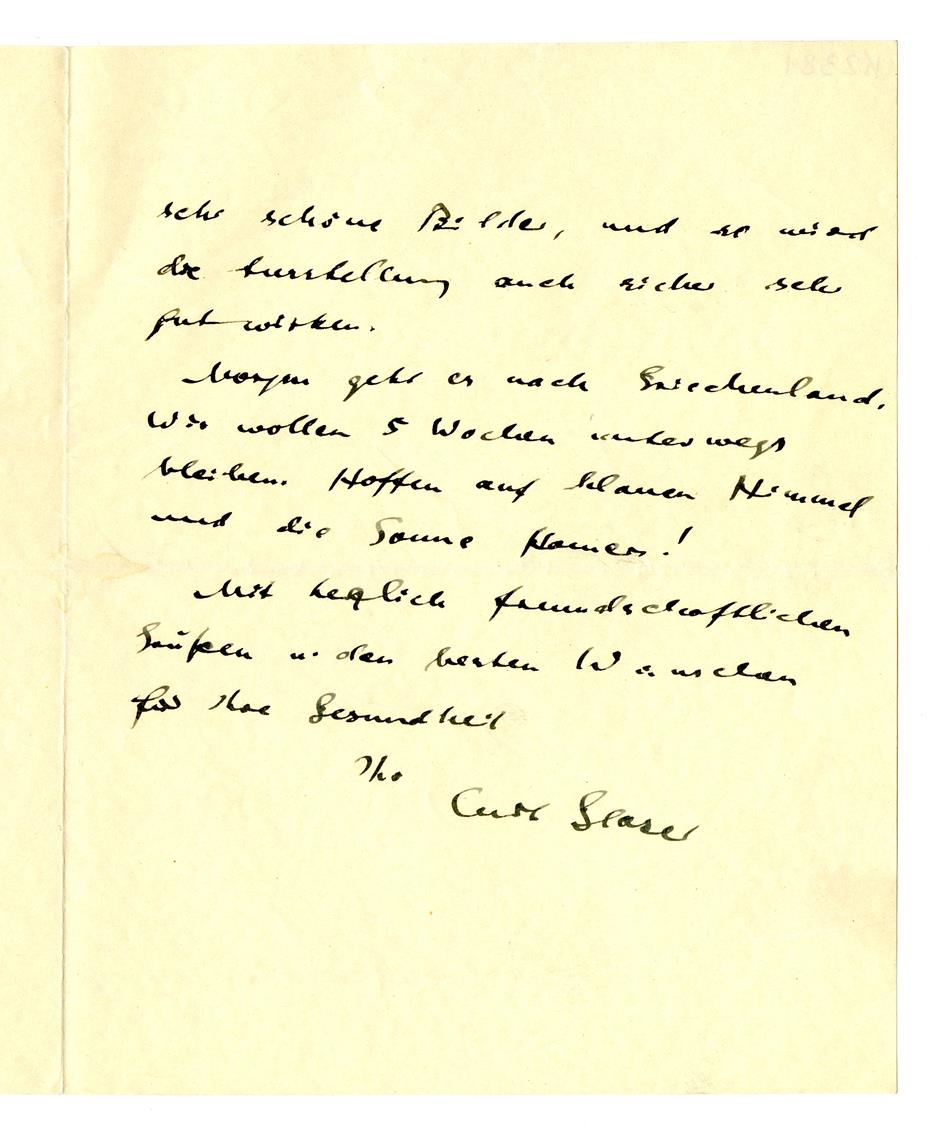 sehr schöne Bilder, und es wird
die Ausstellung auch sicher sehr
gut wirken.
Morgen geht es nach Griechenland.
Wir wollen 5 Wochen unterwegs
bleiben. Hoffen auf blauen Himmel
und die Sonne Homers!
Mit herzlich freundschaftlichen
Grüßen u. den besten Wünschen
für Ihre Gesundheit
Ihr
Curt Glaser